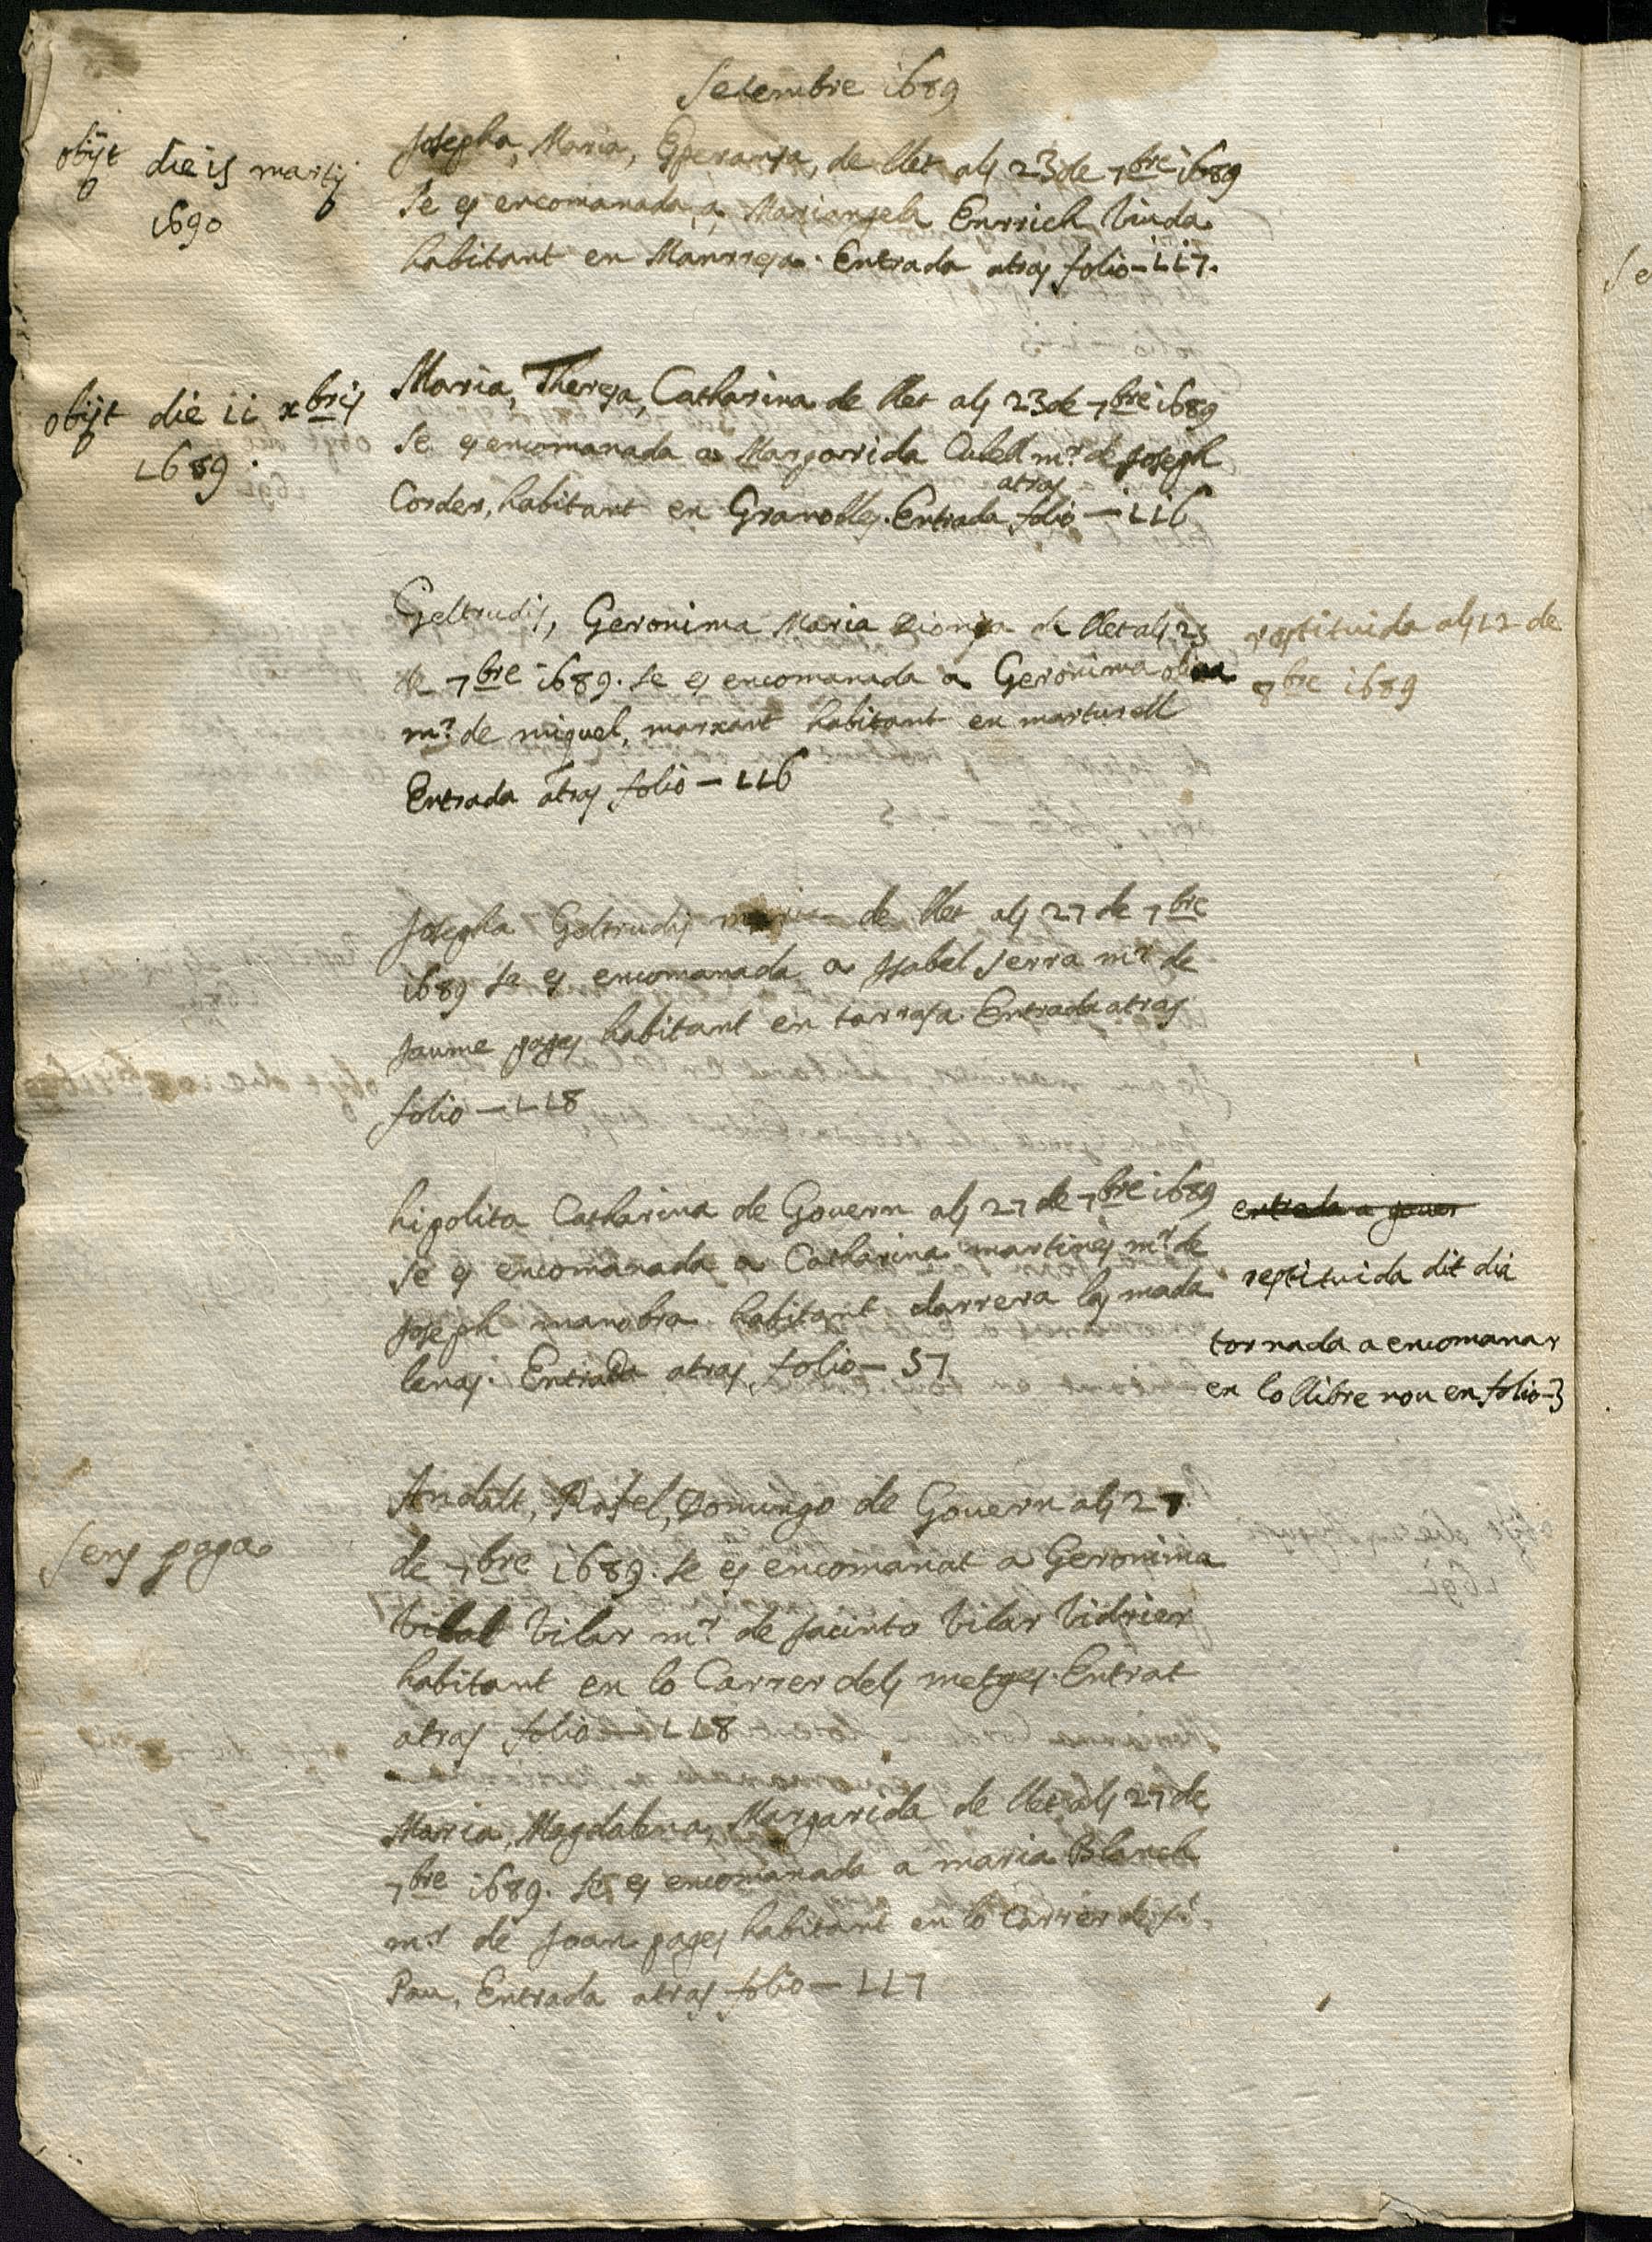 Setembre 1689
obijt die 15 martij
1690
Josepha, Maria, Esperansa, de llet als 23 de 7bre 1689
Se es encomanada a Mariangela Enrrich Viuda
habitant en Manrresa. Entrada atras folio - 117.
obijt die 11 xbris
1689.
Maria, Theresa, Catharina de llet als 23 de 7bre 1689
Se es encomanada a Margarida Cubell mr. de Joseph
atras
Corder, habitant en Granolles. Entrada folio - 116
Geltrudis, Geronima Maria Dionisa de llet als 23
de 7bre 1689. Se es encomanada a Geronima oliva
mr. de miquel, marxant habitant en martorell
Entrada atras folio - 116
restituida als 12 de
8bre 1689
Josepha Geltrudis maria de llet als 27 de 7bre
1689 se es encomanada a Isabel Serra mr. de
Jaume pages habitant en tarrasa. Entrada atras
folio - 118
hipolita Catharina de Govern als 27 de 7bre 1689
Se es encomanada a Catharina martines mr. de
Joseph manobra habitant darrera las mada
lenas. Entrada atras folio - 57
entrada a gover
restituida dit dia
tornada a encomanar
en lo llibre nou en folio - 3
Sens paga
Andalt, Rafel, Domingo de Govern als 27
de 7bre 1689. Se es encomanat a Geronima
Vilar mr. de Jacinto Vilar Vidrier
habitant en lo Carrer dels metges. Entrat
atras folio - 118
Maria, Magdalena, Margarida de llet als 27 de
7bre 1689. Se es encomanada a maria Blanch
mr. de Joan pages habitant en lo Carrer de St.
Pau, Entrada atras folio - 117